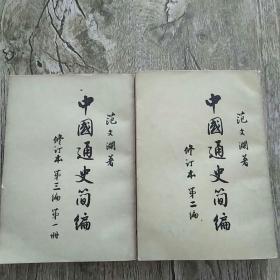 范文瀾著
中國通史簡編
修订本 第三编 第一册
范文瀾著
中國通史簡編
修订本 第二编